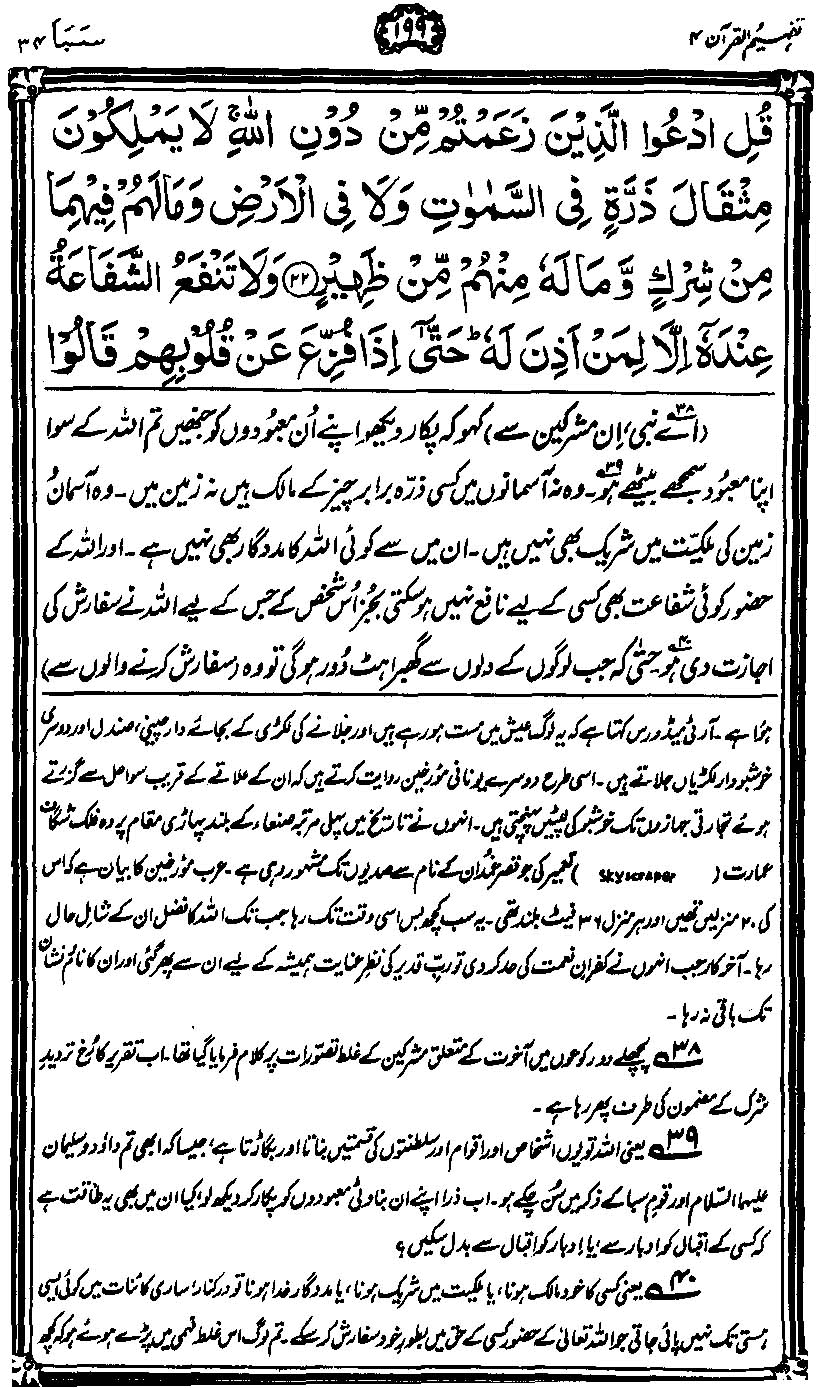 تفہیم القرآن ۴
۱۹۹
سَبَا ۳۴
قُلِ ادْعُوا الَّذِيْنَ زَعَمْتُمْ مِّنْ دُوْنِ اللّٰهِ ۚ لَا يَمْلِكُوْنَ
مِثْقَالَ ذَرَّةٍ فِي السَّمٰوٰتِ وَلَا فِي الْاَرْضِ وَمَا لَهُمْ فِيْهِمَا
مِنْ شِرْكٍ وَّمَا لَهٗ مِنْهُمْ مِّنْ ظَهِيْرٍ ۝۲۲ وَلَا تَنْفَعُ الشَّفَاعَةُ
عِنْدَهٗٓ اِلَّا لِمَنْ اَذِنَ لَهٗ ؕ حَتّٰٓى اِذَا فُزِّعَ عَنْ قُلُوْبِهِمْ قَالُوْا
(اے۳۸ نبیؐ، اِن مشرکین سے) کہو کہ پکار دیکھو اپنے اُن معبُودوں کو جنھیں تم اللہ کے سوا
اپنا معبُود سمجھے بیٹھے ہو۳۹۔ وہ نہ آسمانوں میں کسی ذرّہ برابر چیز کے مالک ہیں نہ زمین میں۔ وہ آسمان و
زمین کی ملکیّت میں شریک بھی نہیں ہیں۔ ان میں سے کوئی اللہ کا مددگار بھی نہیں ہے۔ اور اللہ کے
حضور کوئی شفاعت بھی کسی کے لیے نافع نہیں ہو سکتی بجُز اُس شخص کے جس کے لیے اللہ نے سفارش کی
اجازت دی ہو۴۰۔ حتّٰی کہ جب لوگوں کے دلوں سے گھبراہٹ دُور ہوگی تو وہ (سفارش کرنے والوں سے)
ہؤا ہے۔ آرٹی میڈورس کہتا ہے کہ یہ لوگ عیش میں مست ہو رہے ہیں اور جلانے کی لکڑی کے بجائے دارچینی، صندل اور دوسری
خوشبودار لکڑیاں جلاتے ہیں۔ اسی طرح دوسرے یونانی مؤرخین روایت کرتے ہیں کہ ان کے علاقے کے قریب سواحل سے گزرتے
ہوئے تجارتی جہازوں تک خوشبو کی لپٹیں پہنچتی ہیں۔ انہوں نے تاریخ میں پہلی مرتبہ صنعاء کے بلند پہاڑی مقام پر وہ فلک شگاف
عمارت ( Skyscraper ) تعمیر کی جو قصر غمدان کے نام سے صدیوں تک مشہور رہی ہے۔ عرب مؤرخین کا بیان ہے کہ اس
کی ۲۰ منزلیں تھیں اور ہر منزل ۳۶ فیٹ بلند تھی۔ یہ سب کچھ بس اسی وقت تک رہا جب تک اللہ کا فضل ان کے شامل حال
رہا۔ آخر کار جب انہوں نے کفرانِ نعمت کی حد کر دی تو ربّ قدیر کی نظرِ عنایت ہمیشہ کے لیے ان سے پھر گئی اور ان کا نام و نشان
تک باقی نہ رہا۔
۳۸ پچھلے دو رکوعوں میں آخرت کے متعلق مشرکین کے غلط تصورات پر کلام فرمایا گیا تھا۔ اب تقریر کا رُخ تردیدِ
شرک کے مضمون کی طرف پھر رہا ہے۔
۳۹ یعنی اللہ تو یوں اشخاص اور اقوام اور سلطنتوں کی قسمتیں بناتا اور بگاڑتا ہے، جیسا کہ ابھی تم داؤد و سلیمان
علیہما السّلام اور قومِ سبا کے ذکر میں سُن چکے ہو۔ اب ذرا اپنے ان بناوٹی معبودوں کو پکار کر دیکھ لو، کیا ان میں بھی یہ طاقت ہے
کہ کسی کے اقبال کو ادبار سے، یا ادبار کو اقبال سے بدل سکیں؟
۴۰ یعنی کسی کا خود مالک ہونا، یا ملکیت میں شریک ہونا، یا مددگارِ خدا ہونا تو درکنار، ساری کائنات میں کوئی ایسی
ہستی تک نہیں پائی جاتی جو اللہ تعالیٰ کے حضور کسی کے حق میں بطورِ خود سفارش کر سکے۔ تم لوگ اس غلط فہمی میں پڑے ہوئے ہو کہ کچھ